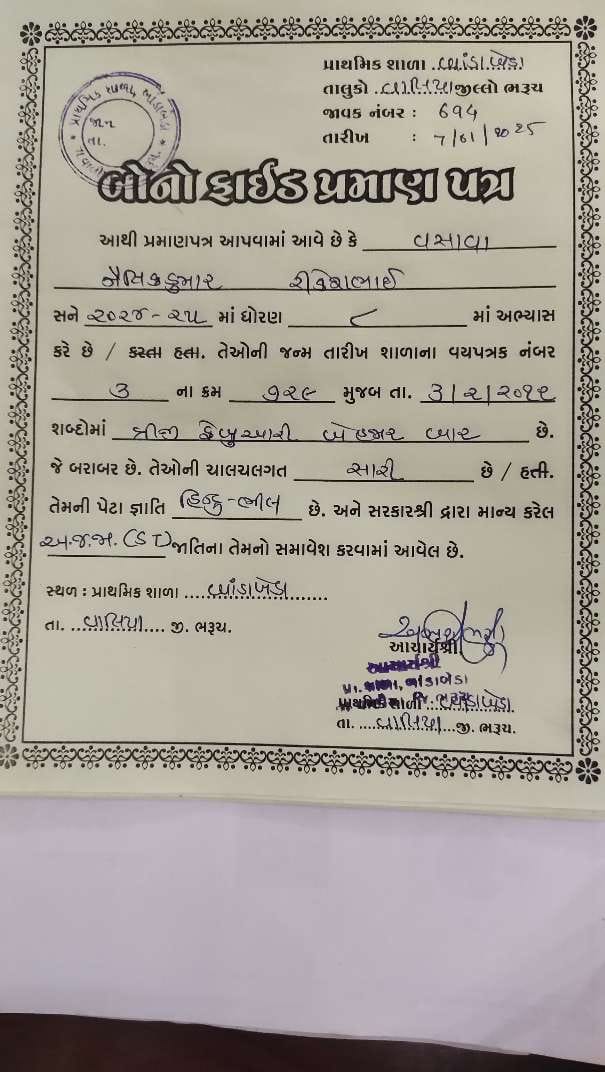 પ્રાથમિક શાળા ચાંડાખેડા
તાલુકો વાલિયા જીલ્લો ભરૂચ
જાવક નંબર : 694
તારીખ : 7/01/2025
બોનોફાઈડ પ્રમાણ પત્ર
આથી પ્રમાણપત્ર આપવામાં આવે છે કે વસાવા
નૈતિકકુમાર
સને ૨૦૨૪-૨૫ માં ધોરણ ૮ માં અભ્યાસ
કરે છે / કરતા હતા. તેઓની જન્મ તારીખ શાળાના વયપત્રક નંબર
૩ ના ક્રમ ૧૨૯ મુજબ તા. ૩/૨/૨૦૧૨
શબ્દોમાં ત્રીજી ફેબ્રુઆરી બેહજાર બાર છે.
જે બરાબર છે. તેઓની ચાલચલગત સારી છે / હતી.
તેમની પેટા જ્ઞાતિ હિન્દુ-ભીલ છે. અને સરકારશ્રી દ્વારા માન્ય કરેલ
અ.જ.જા. (ST) જાતિના તેમનો સમાવેશ કરવામાં આવેલ છે.
સ્થળ : પ્રાથમિક શાળા ચાંડાખેડા
તા. વાલિયા જી. ભરૂચ.
આચાર્યશ્રી
આચાર્યશ્રી
પ્રાથમિક શાળા ચાંડાખેડા
તા. વાલિયા જી. ભરૂચ.